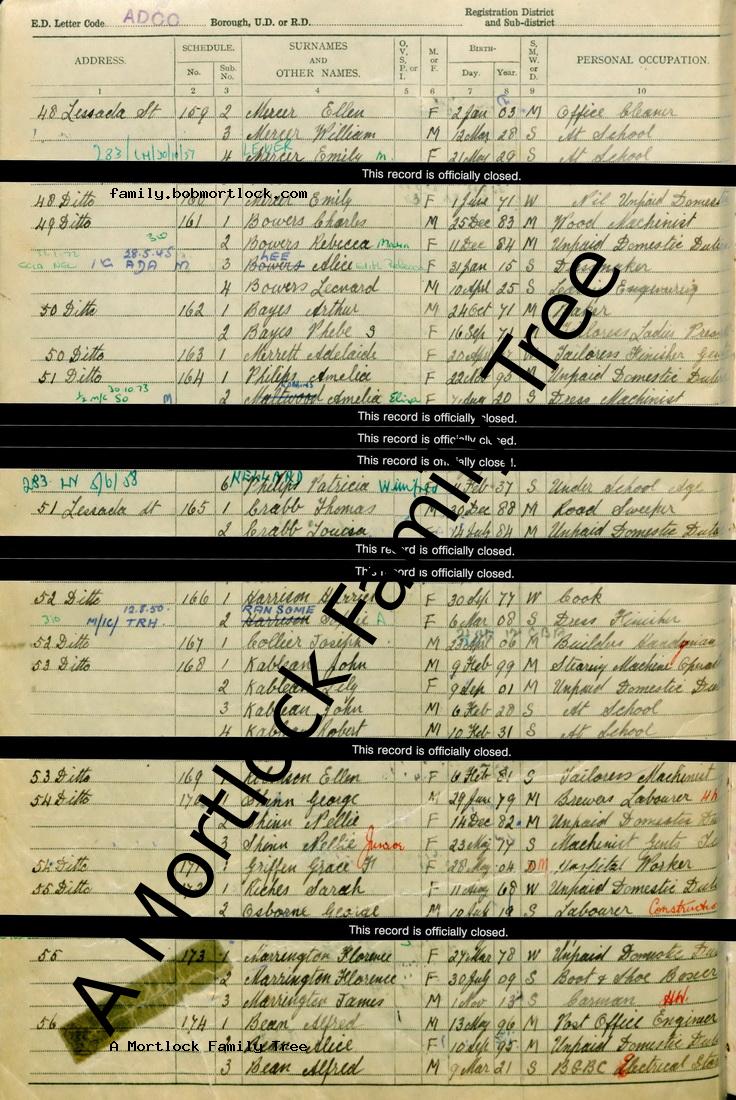 E.D. Letter Code ADCO Borough, U.D. or R.D. Registration District and Sub-district
ADDRESS. SCHEDULE. No. Sub. No. SURNAMES AND OTHER NAMES. O, V, S, P, or I. M. or F. BIRTH- Day. Year. S, M, W, or D. PERSONAL OCCUPATION.
1 2 3 4 5 6 7 8 9 10
48 Lessada St 159 2 Mercer Ellen F 2 Jan 03 M Office Cleaner
3 Mercer William M 12 Mar 28 S At School
283/LH/20/10/57 LEWER
4 Mercer Emily M. F 21 May 29 S At School
This record is officially closed.
family.bobmortlock.com
48 Ditto 160 1 Mercer Emily F 71 W Nil Unpaid Domest
49 Ditto 161 1 Bowers Charles M 25 Dec 83 M Wood Machinist
2 Bowers Rebecca F 11 Dec 84 M Unpaid Domestic Dut
28.5.45 ADA M LEE
3 Bowers Alice F 31 Jan 15 S
4 Bowers Leonard M 10 April 25 S Engineering
50 Ditto 162 1 Bayes Arthur M 24 Oct 71 M
2 Bayes Phebe S F 16 Sep 71 Tailoress Ladies
50 Ditto 163 1 Merrett Adelaide F Tailoress Finisher
51 Ditto 164 1 Philips Amelia F 22 Nov 95 M Unpaid Domestic Dut
30.10.73
M 2 Amelia Eliza F 20 S Dress Machinist
This record is officially closed.
This record is officially closed.
This record is officially closed.
283 LN 5/6/58 NEWLAND
6 Philips Patricia Winifred Feb 37 S Under School Age
51 Lessada St 165 1 Crabb Thomas M 30 Dec 88 M Road Sweeper
2 Crabb Louisa F 14 July 84 M Unpaid Domestic Dut
This record is officially closed.
This record is officially closed.
52 Ditto 166 1 Harrison F 30 Sep 77 W Cook
12.8.50. M/C/ TRH. RANSOME
2 Harrison A F 6 Mar 08 S Dress Finisher
52 Ditto 167 1 Collier Joseph M 06 M Builders Handyman
53 Ditto 168 1 Kablean John M 9 Feb 99 M Machine Operat
2 Kablean Lily F 9 Sep 01 M Unpaid Domestic Dut
3 Kablean John M 6 Feb 28 S At School
4 Kablean Robert M 10 Feb 31 S At School
This record is officially closed.
53 Ditto 169 Ellen F 6 Feb 81 S Tailoress Machinist
54 Ditto 170 1 Shinn George M 29 June 79 M Brewers Labourer
2 Shinn Nellie F 14 Dec 82 M Unpaid Domestic
3 Shinn Nellie Junior F 23 May S Machinist Gents
54 Ditto 171 Griffen Grace F 28 May 04 M Hospital Worker
55 Ditto 172 1 Riches Sarah F 11 Aug 68 W Unpaid Domestic Dut
2 Osborne George M 10 July 19 S Labourer Constructio
This record is officially closed.
55 173 1 Marrington Florence F 27 Mar 78 W Unpaid Domestic
2 Marrington Florence F 30 July 09 S Boot & Shoe
3 Marrington James M 1 Nov 13 S Carman
56 174 1 Bean Alfred M 13 May 96 M Post Office Engineer
2 Bean Alice F 10 Sep 95 M Unpaid Domestic
3 Bean Alfred M 9 Mar 21 S Electrical
A Mortlock Family Tree
A Mortlock Family Tree